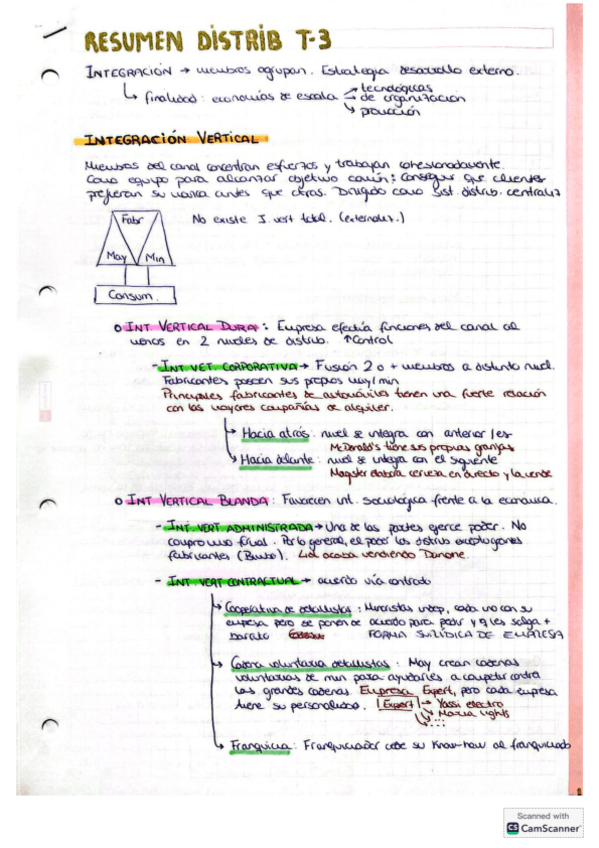 RESUMEN DISTRIB T-3
INTEGRACIÓN → miembros agrupan. Estrategia desarrollo externo.
↳ finalidad: economías de escala → tecnológicas
→ de organización
→ producción
INTEGRACIÓN VERTICAL
Miembros del canal concentran esfuerzos y trabajan cohesionadamente.
Como equipo para alcanzar objetivo común: conseguir que clientes
prefieran su marca antes que otras. Dirigido como sist. distrib. centraliz
Fabr
No existe I. vert total. (externaliz.)
May Min
Consum.
o INT VERTICAL DURA: Empresa efectúa funciones del canal al
menos en 2 niveles de distrib. ↑Control
- INT VET. CORPORATIVA → Fusión 2 o + miembros a distinto nivel.
Fabricantes poseen sus propios may/min
Principales fabricantes de automóviles tienen una fuerte relación
con las mayores compañías de alquiler.
→ Hacia atrás: nivel se integra con anterior/es
McDonald's tiene sus propias granjas
→ Hacia delante: nivel se integra con el siguiente
Magister elabora cerveza en directo y la vende
o INT VERTICAL BLANDA: Favorecen int. sociológica frente a la económica.
- INT. VERT ADMINISTRADA → Una de las partes ejerce poder. No
compromiso formal. Por lo general, el poder los distrib excepto grandes
fabricantes (Bimbo). Lidl acaba vendiendo Danone.
- INT VERT CONTRACTUAL → acuerdo vía contrato
→ Cooperativa de detallistas: Minoristas indep, cada uno con su
empresa pero se ponen de acuerdo para pedir y q les salga +
barato FORMA JURÍDICA DE EMPRESA
→ Cadena voluntaria detallistas: May crean cadenas
voluntarias de min para ayudarles a competir contra
las grandes cadenas. Empresa Expert, pero cada empresa
tiene su personalidad. Expert → Yassi electro
→ Maria Lights
→ ...
→ Franquicia: Franquiciador cede su know-how al franquiciado
Scanned with
CS CamScanner